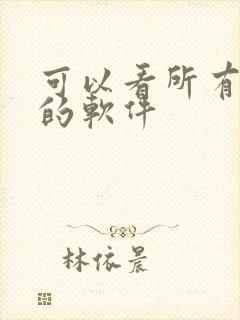 可以看所有
的軟件
林依晨